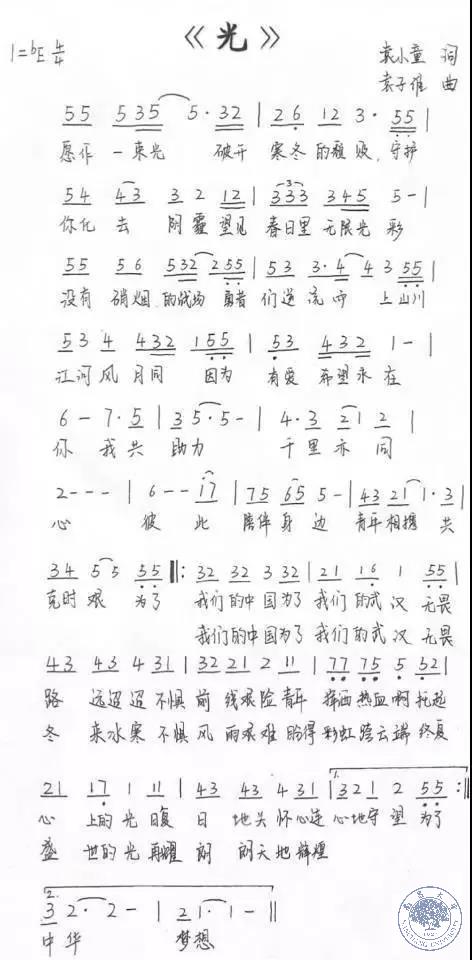 《光》
1=bE 4/4
袁小童 词
袁子维 曲
55 535 5·32 | 26 12 3·55 |
愿作 一束光 破开 寒冬的 守护
54 43 3 2 12 | 333 345 5- |
你化去 阴霾 望见 春日里 无限光彩
55 56 532 255 | 53 3·4 4 3 55 |
没有 硝烟 的战场 勇者 们逆流而 上山川
53 4 432 155 | 53 432 1- |
江河风月同 因为 有爱 希望永在
6- 7·5 | 35·5- | 4·3 21 2 |
你 我共 助力 千里亦同
2--- | 6--17 | 75 65 5- | 43 21 1·3 |
心 彼此 陪伴身边 青年相携 共
34 55 55 ‖: 32 32 3 32 | 21 16 1 55 |
克时艰 为了 我们的中国为了 我们的武汉 无畏
我们的中国为了 我们的武汉 无畏
43 43 4 31 | 32 21 2 11 | 77 75 5 52 |
路 远迢迢 不惧 前 线艰险 青年 挥洒 热血啊 托起
冬 来水寒 不惧 风 雨艰难 盼得 彩虹 跨云端 终复
21 17 1 11 | 43 43 4 31 | 1. 321 2 55 :‖
心 上的光 日复 日 地关怀 心连 心地守望 为了
盛 世的光 再耀 朗 朗天地 辉煌
2. 3 2·2- | 21·1- ‖
中华 梦想